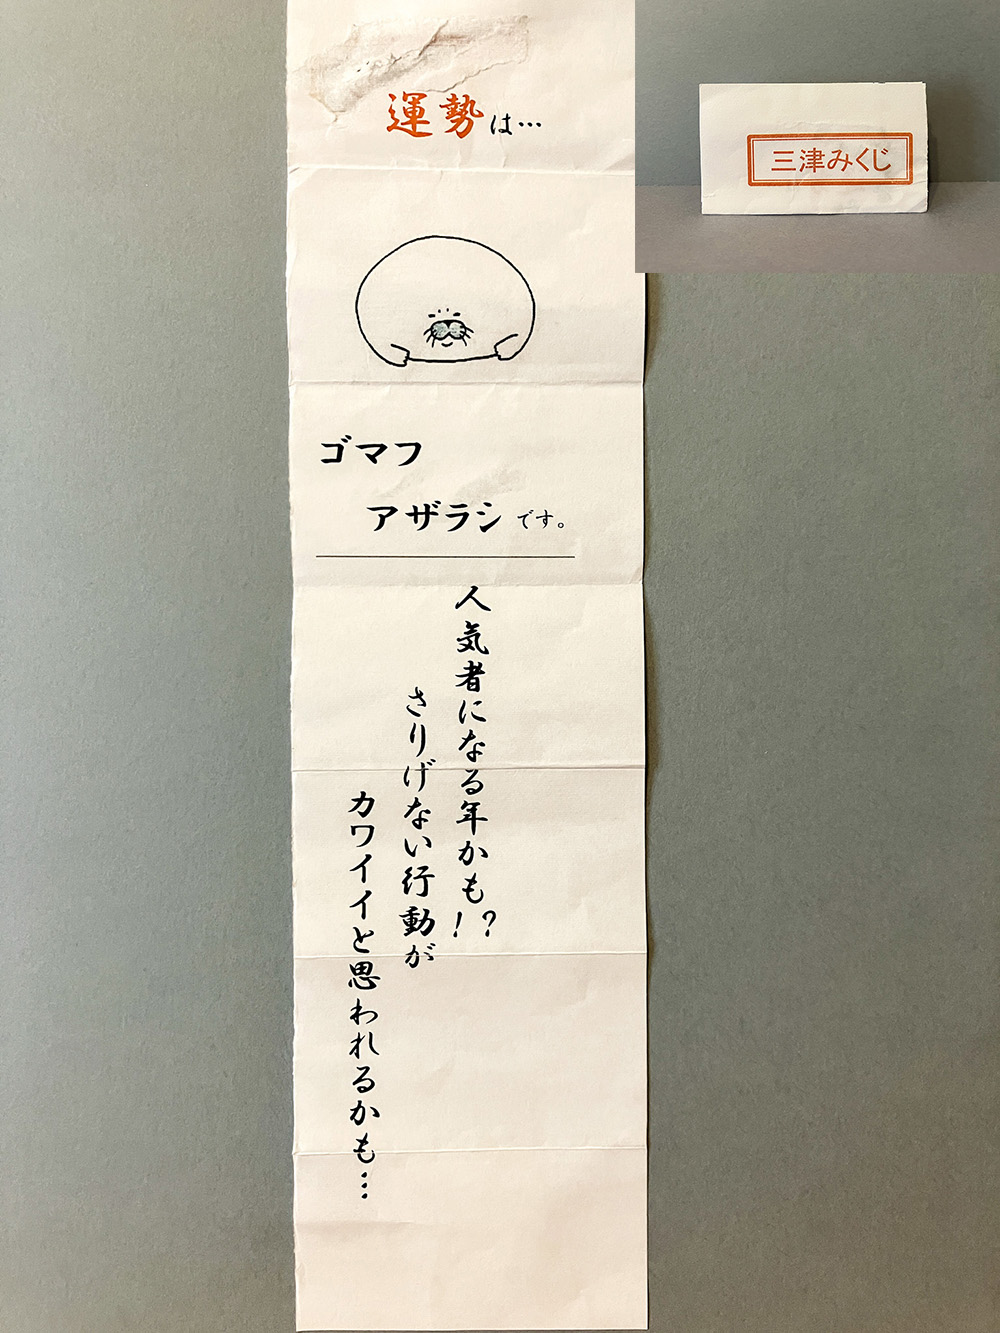 運勢は…
ゴマフ
アザラシです。
人気者になる年かも!?
さりげない行動が
カワイイと思われるかも…
三津みくじ